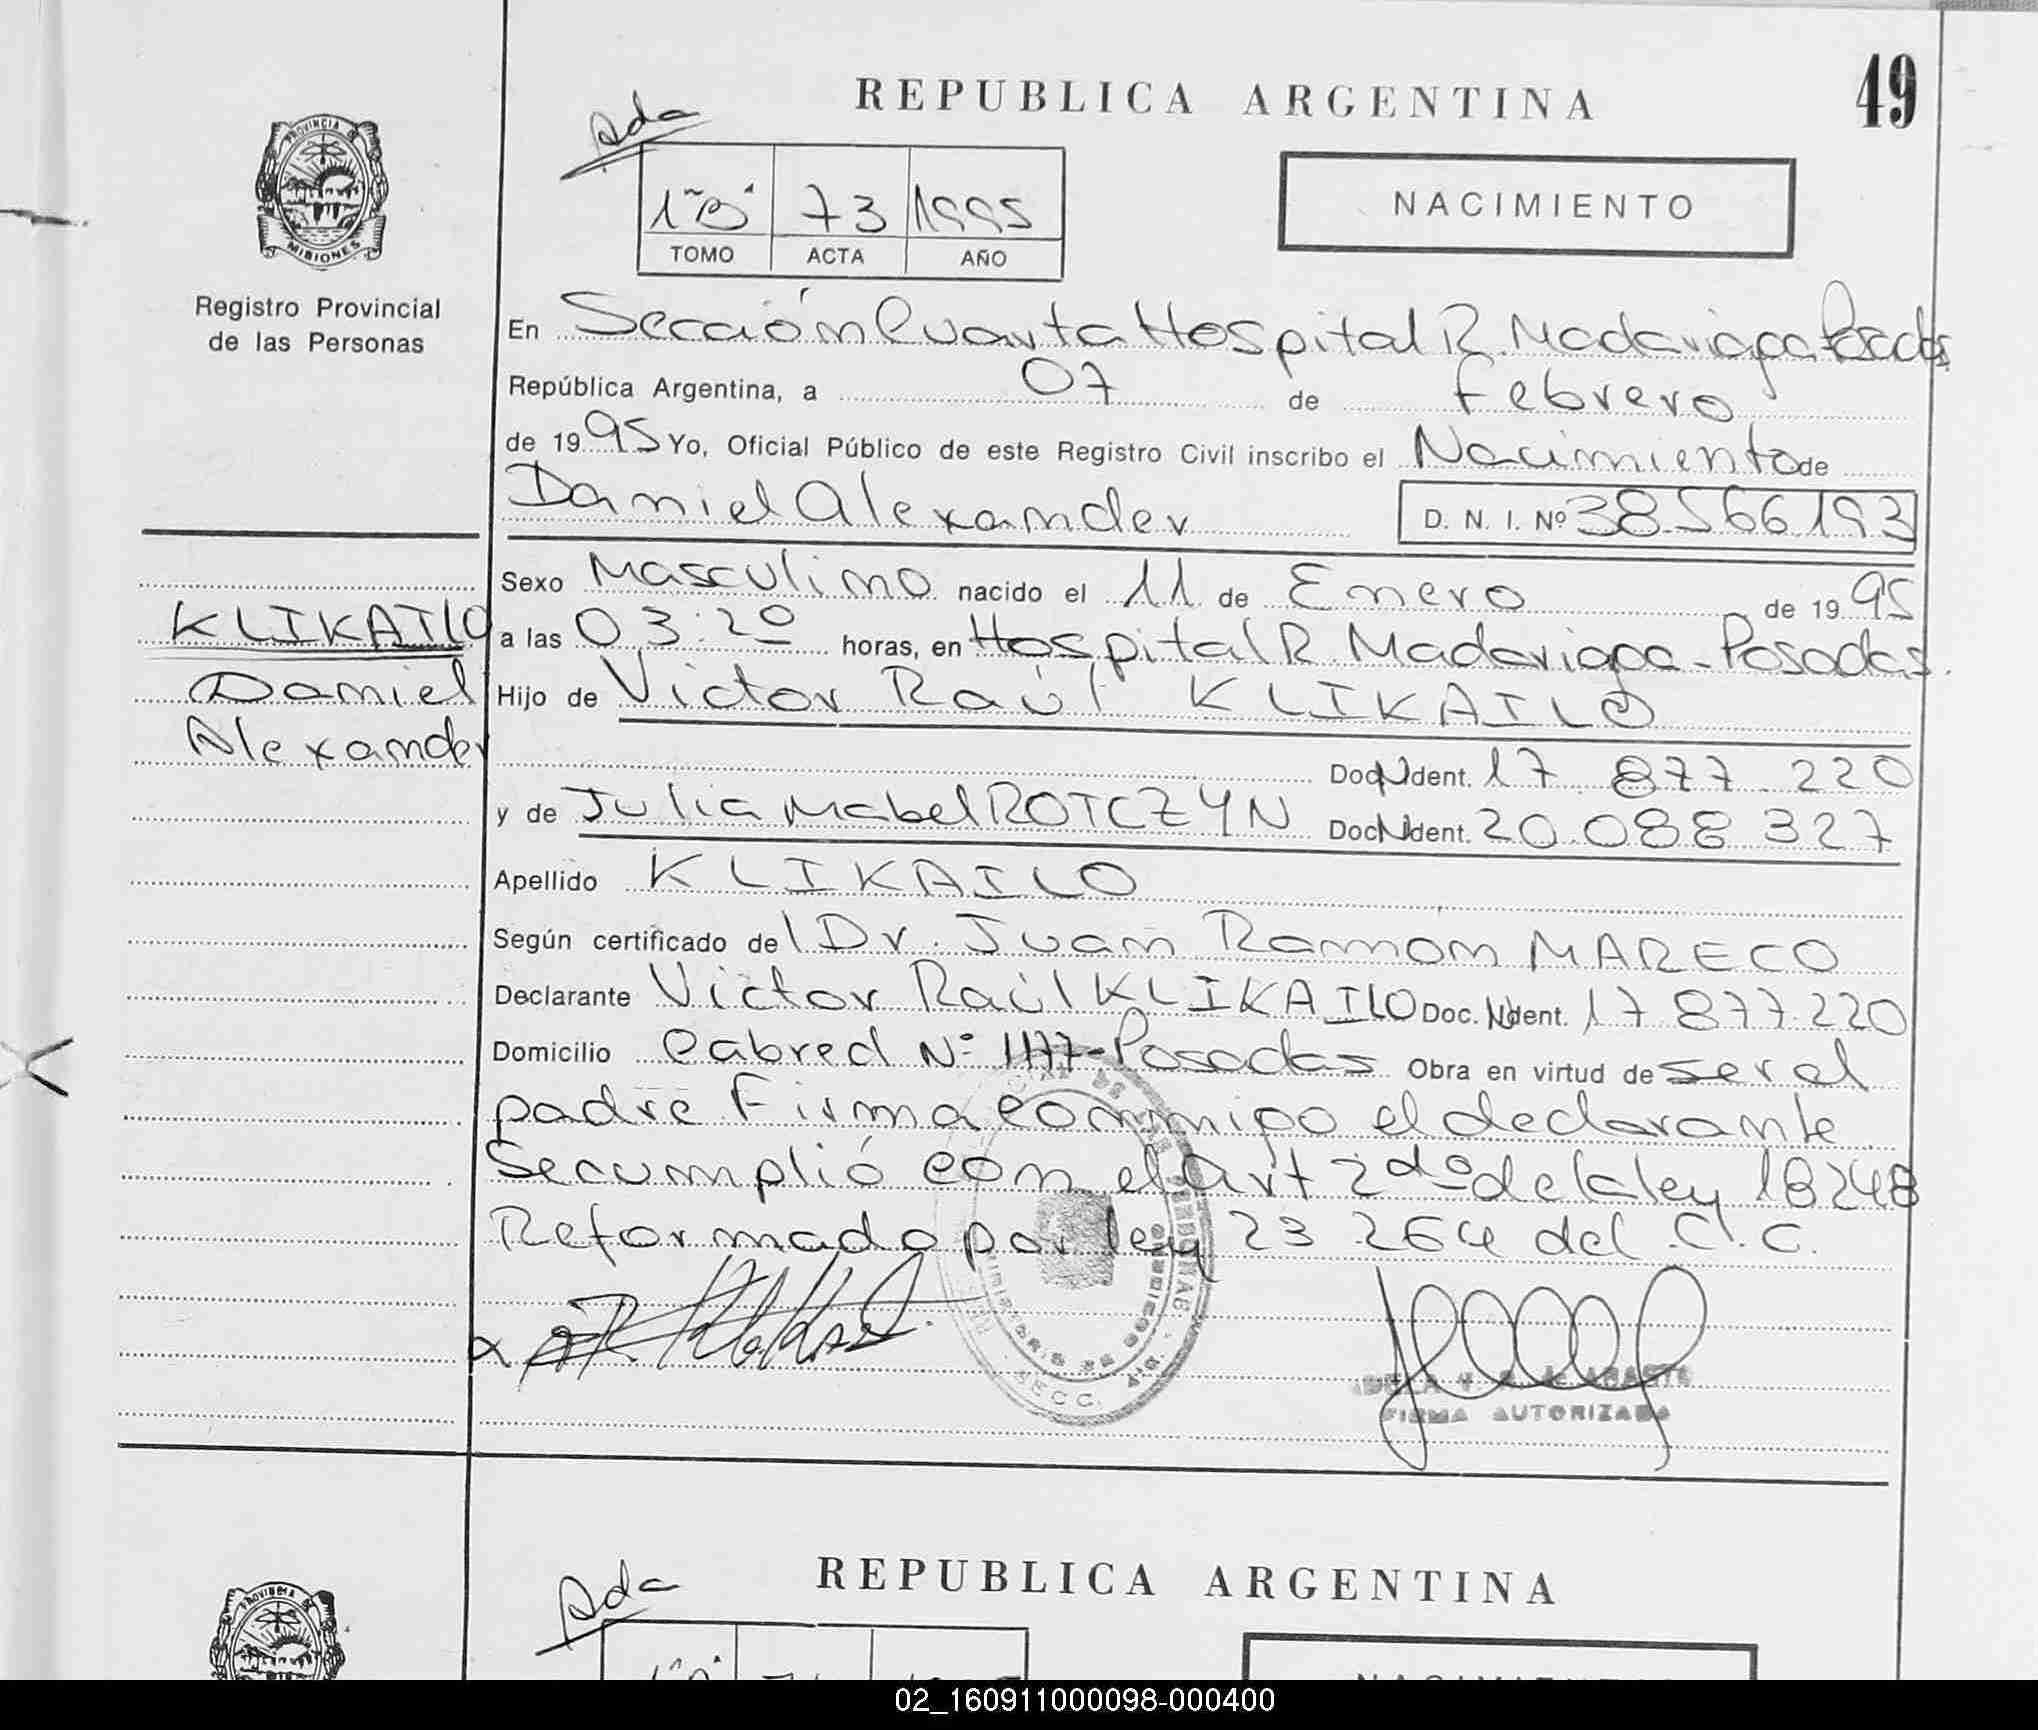 49
REPUBLICA ARGENTINA
Ada
PROVINCIA DE
MISIONES
1º "B" 73 1995
TOMO ACTA AÑO
NACIMIENTO
Registro Provincial
de las Personas
En Sección Cuarta Hospital R. Madariaga Posadas
República Argentina, a 07 de Febrero
de 1995 Yo, Oficial Público de este Registro Civil inscribo el Nacimiento de
Daniel Alexander D. N. I. Nº 38.566193
Sexo Masculino nacido el 11 de Enero de 1995
KLIKAILO
Daniel
Alexander
a las 03:20 horas, en Hospital R. Madariaga - Posadas.
Hijo de Victor Raúl KLIKAILO
Doc. Ident. 17.877.220
y de Julia Mabel ROTCZYN Doc. Ident. 20.088.327
Apellido KLIKAILO
Según certificado del Dr. Juan Ramon MARECO
Declarante Victor Raúl KLIKAILO Doc. Ident. 17.877.220
Domicilio Cabred Nº 1177-Posadas Obra en virtud de ser el
padre Firma conmigo el declarante
Se cumplió con el Art 2do de la ley 18248
Reformado por ley 23.264 del C.C.
SECC.
FIRMA AUTORIZADA
REPUBLICA ARGENTINA
Ada
PROVINCIA
02_160911000098-000400